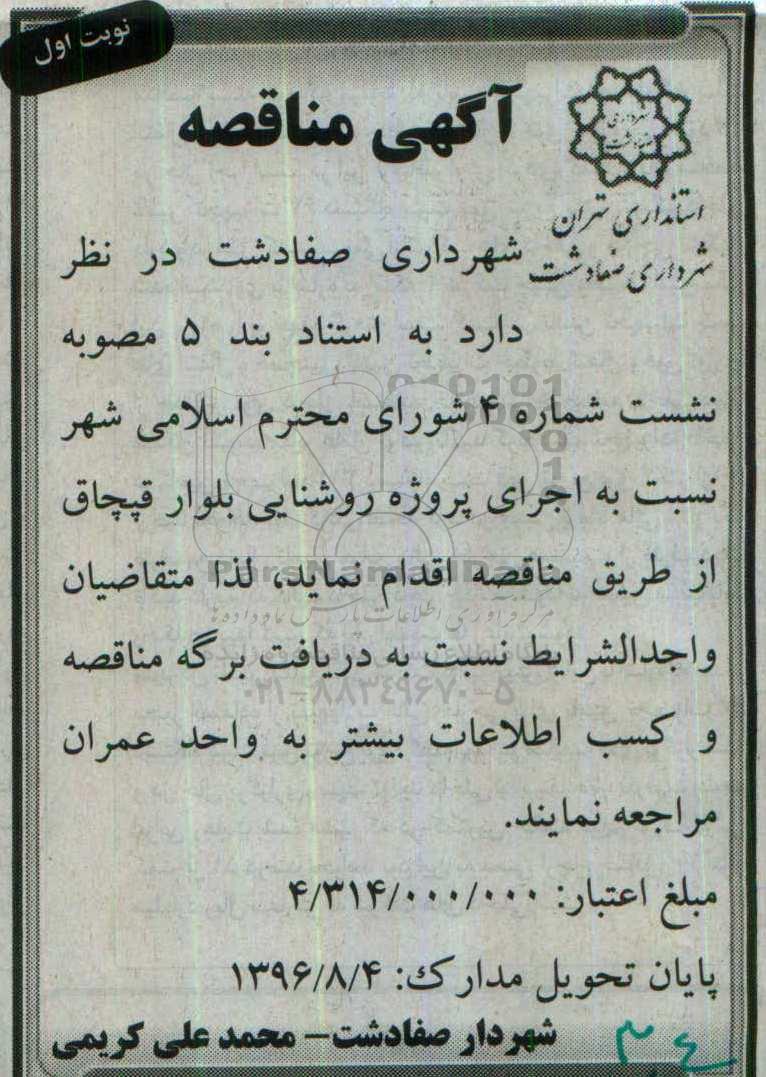 نوبت اول
آگهی مناقصه
شهرداری صفادشت
استانداری تهران
شهرداری صفادشت
شهرداری صفادشت در نظر
دارد به استناد بند ۵ مصوبه
نشست شماره ۴ شورای محترم اسلامی شهر
نسبت به اجرای پروژه روشنایی بلوار قپچاق
از طریق مناقصه اقدام نماید، لذا متقاضیان
واجدالشرایط نسبت به دریافت برگه مناقصه
و کسب اطلاعات بیشتر به واحد عمران
مراجعه نمایند.
مبلغ اعتبار: ۴/۳۱۴/۰۰۰/۰۰۰
پایان تحویل مدارک: ۱۳۹۶/۸/۴
شهردار صفادشت- محمد علی کریمی
ParsNamadData
مرکز فرآوری اطلاعات پارس نماد داده ها
۰۲۱-۸۸۳۴۹۶۷۰-۵